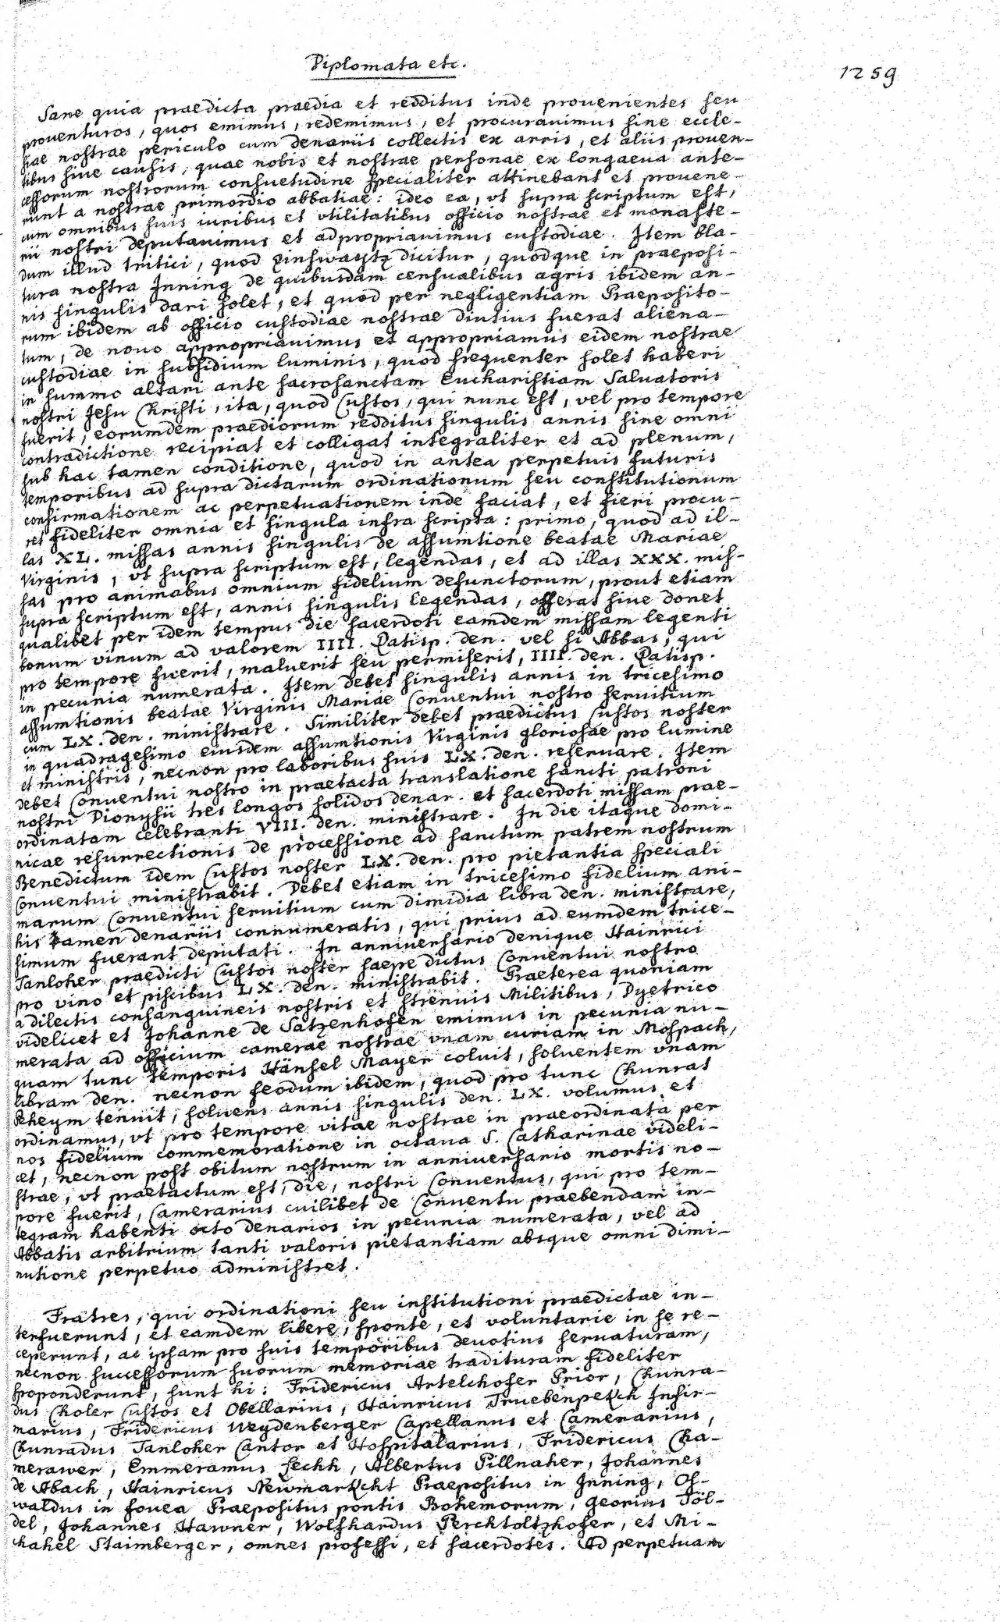 Diplomata etc.
1259
Sane quia praedicta praedia et redditus inde prouenientes seu
prouenturos, quos emimus, redemimus, et procurauimus sine eccle-
siae nostrae periculo cum denariis collectis ex arris, et aliis prouen-
tibus siue causis, quae nobis et nostrae personae ex longaeua ante-
cessorum nostrorum consuetudine specialiter attinebant et prouene-
runt a nostrae primordio abbatiae: ideo ea, vt supra scriptum est,
cum omnibus suis iuribus et vtilitatibus officio nostrae et monaste-
rii nostri deputauimus et adpropriauimus custodiae. Item bla-
dum illud tritici, quod dicitur, quodque in praeposi-
tura nostra Inning de quibusdam censualibus agris ibidem an-
nis singulis dari solet, et quod per negligentiam Praeposito-
rum ibidem ab officio custodiae nostrae diutius fuerat aliena-
tum, de nouo appropriauimus et appropriamus eidem nostrae
custodiae in subsidium luminis, quod frequenter solet haberi
in summo altari ante sacrosanctam Eucharistiam Saluatoris
nostri Jesu Christi, ita, quod Custos, qui nunc est, vel pro tempore
fuerit, eorumdem praediorum redditus singulis annis sine omni
contradictione recipiat et colligat integraliter et ad plenum,
sub hac tamen conditione, quod in antea perpetuis futuris
temporibus ad supra dictarum ordinationum seu constitutionum
confirmationem ac perpetuationem inde faciat, et fieri procu-
ret fideliter omnia et singula infra scripta: primo, quod ad il-
las XL. missas annis singulis de assumtione beatae Mariae
Virginis, vt supra scriptum est, legendas, et ad illas XXX. mis-
sas pro animabus omnium fidelium defunctorum, prout etiam
supra scriptum est, annis singulis legendas, offerat siue donet
qualibet per idem tempus die sacerdoti eamdem missam legenti
bonum vinum ad valorem IIII. Ratisp. den. vel si Abbas, qui
pro tempore fuerit, maluerit seu permiserit, IIII. den. Ratisp.
in pecunia numerata. Item debet singulis annis in tricesimo
assumtionis beatae Virginis Mariae Conuentui nostro seruitium
cum LX. den. ministrare. Similiter debet praedictus Custos noster
in quadragesimo eiusdem assumtionis Virginis gloriosae pro lumine
et ministris, necnon pro laboribus suis LX. den. reseruare. Item
debet Conuentui nostro in praetacta translatione sancti patroni
nostri Dionysii tres longos solidos denar. et sacerdoti missam prae-
ordinatam celebranti VIII. den. ministrare. In die itaque domi-
nicae resurrectionis de processione ad sanctum patrem nostrum
Benedictum idem Custos noster LX. den. pro pietantia speciali
Conuentui ministrabit. Debet etiam in tricesimo fidelium ani-
marum Conuentui seruitium cum dimidia libra den. ministrare,
his tamen denariis connumeratis, qui prius ad eumdem trice-
simum fuerant deputati. In anniuersario denique Hainrici
Tanloher praedicti Custos noster saepe dictus Conuentui nostro
pro vino et piscibus LX. den. ministrabit. Praeterea quoniam
a dilectis consanguineis nostris et strenuis Militibus, Dyetrico
videlicet et Johanne de Satzenhofen emimus in pecunia nu-
merata ad officium camerae nostrae vnam curiam in Mospach,
quam tunc temporis Hänsel Mayer coluit, soluentem vnam
libram den. necnon feodum ibidem, quod pro tunc Chunrat
Reheym tenuit, soluens annis singulis den. LX. volumus et
ordinamus, vt pro tempore vitae nostrae in praeordinata per
nos fidelium commemoratione in octaua S. Catharinae videli-
cet, necnon post obitum nostrum in anniuersario mortis no-
strae, vt praetactum est, die, nostri Conuentus, qui pro tem-
pore fuerit, Camerarius cuilibet de Conuentu praebendam in-
tegram habenti octo denarios in pecunia numerata, vel ad
Abbatis arbitrium tanti valoris pietantiam absque omni dimi-
nutione perpetuo administret.
Fratres, qui ordinationi seu institutioni praedictae in-
terfuerunt, et eamdem libere, sponte, et voluntarie in se re-
ceperunt, ac ipsam pro suis temporibus deuotius seruaturam,
necnon successorum suorum memoriae tradituram fideliter
spoponderunt, sunt hi: Fridericus Artelchofer Prior, Chunra-
dus Choler Custos et Obellarius, Hainricus Truebenpekch Infir-
marius, Fridericus Weydenberger Capellanus et Camerarius,
Chunradus Tanloher Cantor et Hospitalarius, Fridericus Cha-
merawer, Emmeramus Lechh, Albertus Pillnaher, Johannes
de Abach, Hainricus Newmarkcht Praepositus in Inning, Os-
waldus in fouea Praepositus pontis Bohemorum, Georius Töl-
del, Johannes Hawner, Wolfhardus Perchtoltzhofer, et Mi-
chahel Staimberger, omnes professi, et sacerdotes. Ad perpetuam